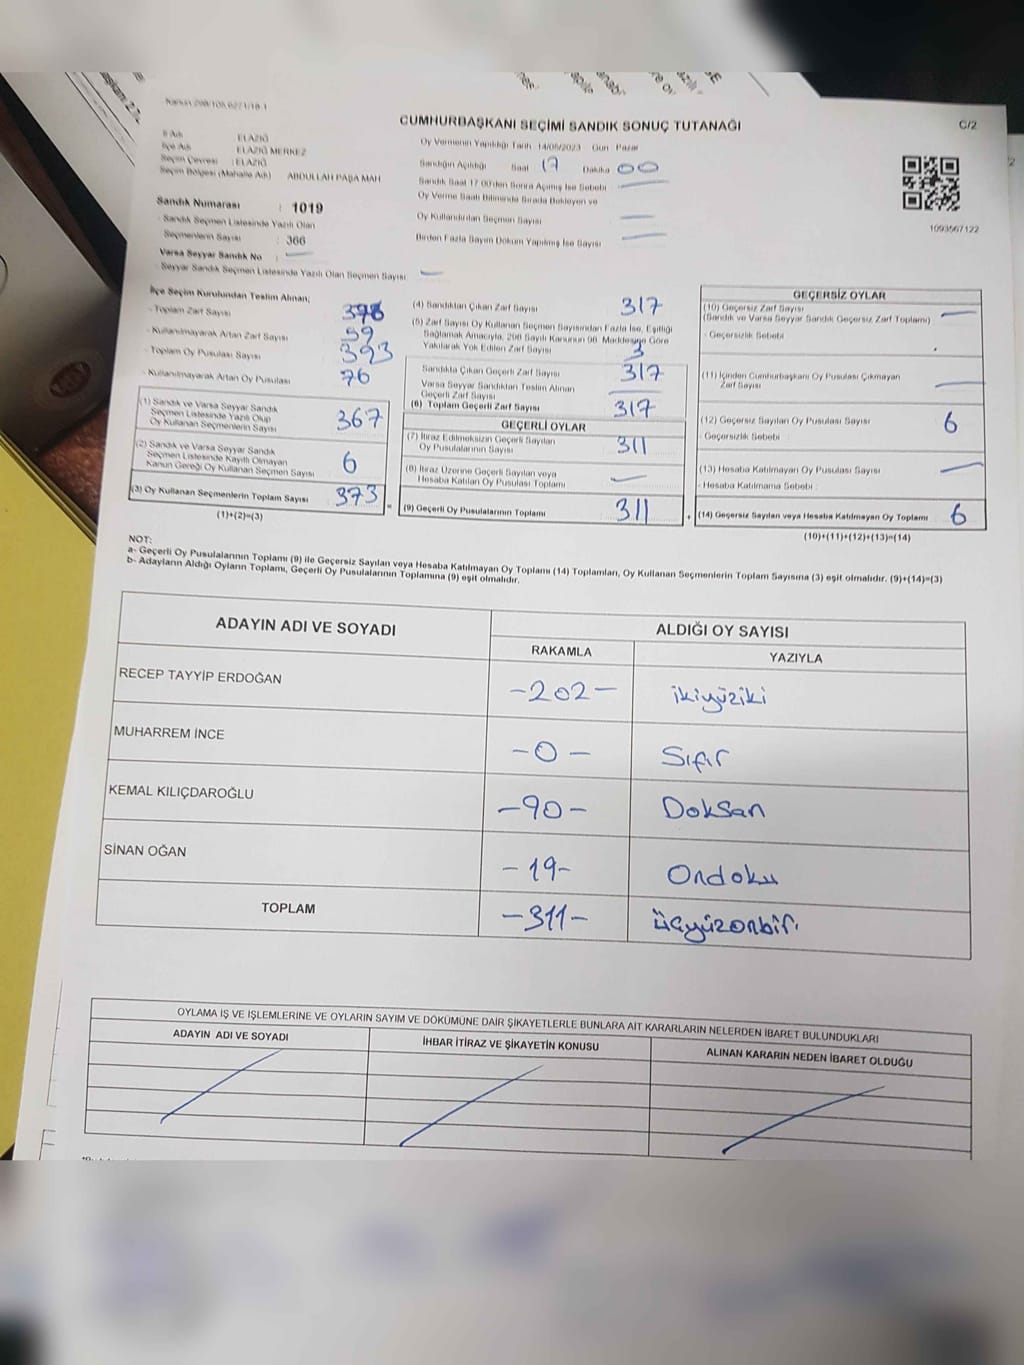 CUMHURBAŞKANI SEÇİMİ SANDIK SONUÇ TUTANAĞI
C/2
İl Adı : ELAZIĞ
İlçe Adı : ELAZIĞ MERKEZ
Seçim Çevresi : ELAZIĞ
Seçim Bölgesi (Mahalle Adı) ABDULLAH PAŞA MAH
Sandık Numarası : 1019
- Sandık Seçmen Listesinde Yazılı Olan
Seçmenlerin Sayısı : 366
Varsa Seyyar Sandık No : —
- Seyyar Sandık Seçmen Listesinde Yazılı Olan Seçmen Sayısı: —
Oy Vermenin Yapıldığı Tarih 14/05/2023 Gün : Pazar
Sandığın Açıldığı Saat 17 Dakika 00
Sandık Saat 17:00'den Sonra Açılmış İse Sebebi : —
Oy Verme Saati Bitiminde Sırada Bekleyen ve
Oy Kullandırılan Seçmen Sayısı —
Birden Fazla Sayım Döküm Yapılmış İse Sayısı —
1093567122
İlçe Seçim Kurulundan Teslim Alınan;
- Toplam Zarf Sayısı
- Kullanılmayarak Artan Zarf Sayısı 59
- Toplam Oy Pusulası Sayısı 393
- Kullanılmayarak Artan Oy Pusulası 76
(1) Sandık ve Varsa Seyyar Sandık
Seçmen Listesinde Yazılı Olup
Oy Kullanan Seçmenlerin Sayısı 367
(2) Sandık ve Varsa Seyyar Sandık
Seçmen Listesinde Kayıtlı Olmayan
Kanun Gereği Oy Kullanan Seçmen Sayısı 6
(3) Oy Kullanan Seçmenlerin Toplam Sayısı 373
(1)+(2)=(3)
(4) Sandıktan Çıkan Zarf Sayısı 317
(5) Zarf Sayısı Oy Kullanan Seçmen Sayısından Fazla İse, Eşitliği
Sağlamak Amacıyla, 298 Sayılı Kanunun 98. Maddesine Göre
Yakılarak Yok Edilen Zarf Sayısı 3
Sandıkta Çıkan Geçerli Zarf Sayısı 317
Varsa Seyyar Sandıktan Teslim Alınan
Geçerli Zarf Sayısı —
(6) Toplam Geçerli Zarf Sayısı 317
GEÇERLİ OYLAR
(7) İtiraz Edilmeksizin Geçerli Sayılan
Oy Pusulalarının Sayısı 311
(8) İtiraz Üzerine Geçerli Sayılan veya
Hesaba Katılan Oy Pusulası Toplamı —
(9) Geçerli Oy Pusulalarının Toplamı 311
GEÇERSİZ OYLAR
(10) Geçersiz Zarf Sayısı —
(Sandık ve Varsa Seyyar Sandık Geçersiz Zarf Toplamı)
- Geçersizlik Sebebi :
(11) İçinden Cumhurbaşkanı Oy Pusulası Çıkmayan
Zarf Sayısı —
(12) Geçersiz Sayılan Oy Pusulası Sayısı 6
- Geçersizlik Sebebi :
(13) Hesaba Katılmayan Oy Pusulası Sayısı —
- Hesaba Katılmama Sebebi :
(14) Geçersiz Sayılan veya Hesaba Katılmayan Oy Toplamı 6
(10)+(11)+(12)+(13)=(14)
NOT:
a- Geçerli Oy Pusulalarının Toplamı (9) ile Geçersiz Sayılan veya Hesaba Katılmayan Oy Toplamı (14) Toplamları, Oy Kullanan Seçmenlerin Toplam Sayısına (3) eşit olmalıdır. (9)+(14)=(3)
b- Adayların Aldığı Oyların Toplamı, Geçerli Oy Pusulalarının Toplamına (9) eşit olmalıdır.
ADAYIN ADI VE SOYADI ALDIĞI OY SAYISI
RAKAMLA YAZIYLA
RECEP TAYYİP ERDOĞAN -202- ikiyüziki
MUHARREM İNCE -0- Sıfır
KEMAL KILIÇDAROĞLU -90- Doksan
SİNAN OĞAN -19- Ondoku
TOPLAM -311- üçyüzonbir.
OYLAMA İŞ VE İŞLEMLERİNE VE OYLARIN SAYIM VE DÖKÜMÜNE DAİR ŞİKAYETLERLE BUNLARA AİT KARARLARIN NELERDEN İBARET BULUNDUKLARI
ADAYIN ADI VE SOYADI İHBAR İTİRAZ VE ŞİKAYETİN KONUSU ALINAN KARARIN NEDEN İBARET OLDUĞU